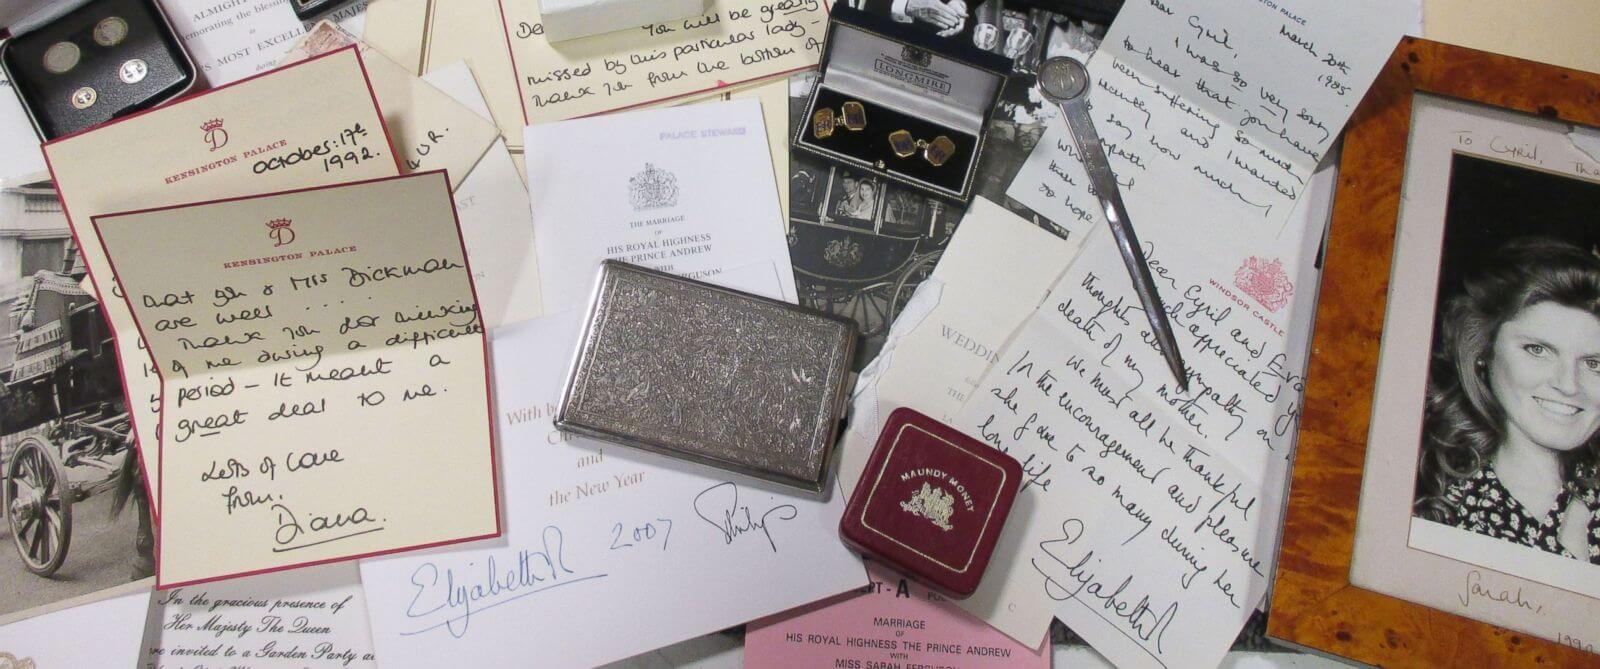 ALMIGHT
emorating the blessing
'S MOST EXCELLEN
during
D
KENSINGTON PALACE
October: 17th
1992.
D
KENSINGTON PALACE
that you & Mrs Dickman
are well . . .
Thank you for thinking
of me during a difficult
period – it meant a
great deal to me.
Lots of love
from.
Diana.
You will be greatly
missed by this particular lady –
Thank you from the bottom of
PALACE STEWARD
THE MARRIAGE
OF
HIS ROYAL HIGHNESS
THE PRINCE ANDREW
WITH
FERGUSON
LONGMIRE
PALACE
March 20th
1985.
Dear Cyril,
I was so very sorry
to hear that you have
been suffering so much
recently and I wanted
to say how much
to hope
WINDSOR CASTLE
Dear Cyril and Eva
much appreciated
thoughts and sympathy on
death of my mother.
We must all be thankful
for the encouragement and pleasure
she gave to so many during her
long life
Elizabeth R
WEDDIN
THE
With be
Chri
and
the New Year
Elizabeth R 2007 Philip
MAUNDY MONEY
In the gracious presence of
Her Majesty The Queen
are invited to a Garden Party a
PT - A
MARRIAGE
OF
HIS ROYAL HIGHNESS THE PRINCE ANDREW
WITH
MISS SARAH FERGUS
To Cyril, Tha
Sarah,
1992